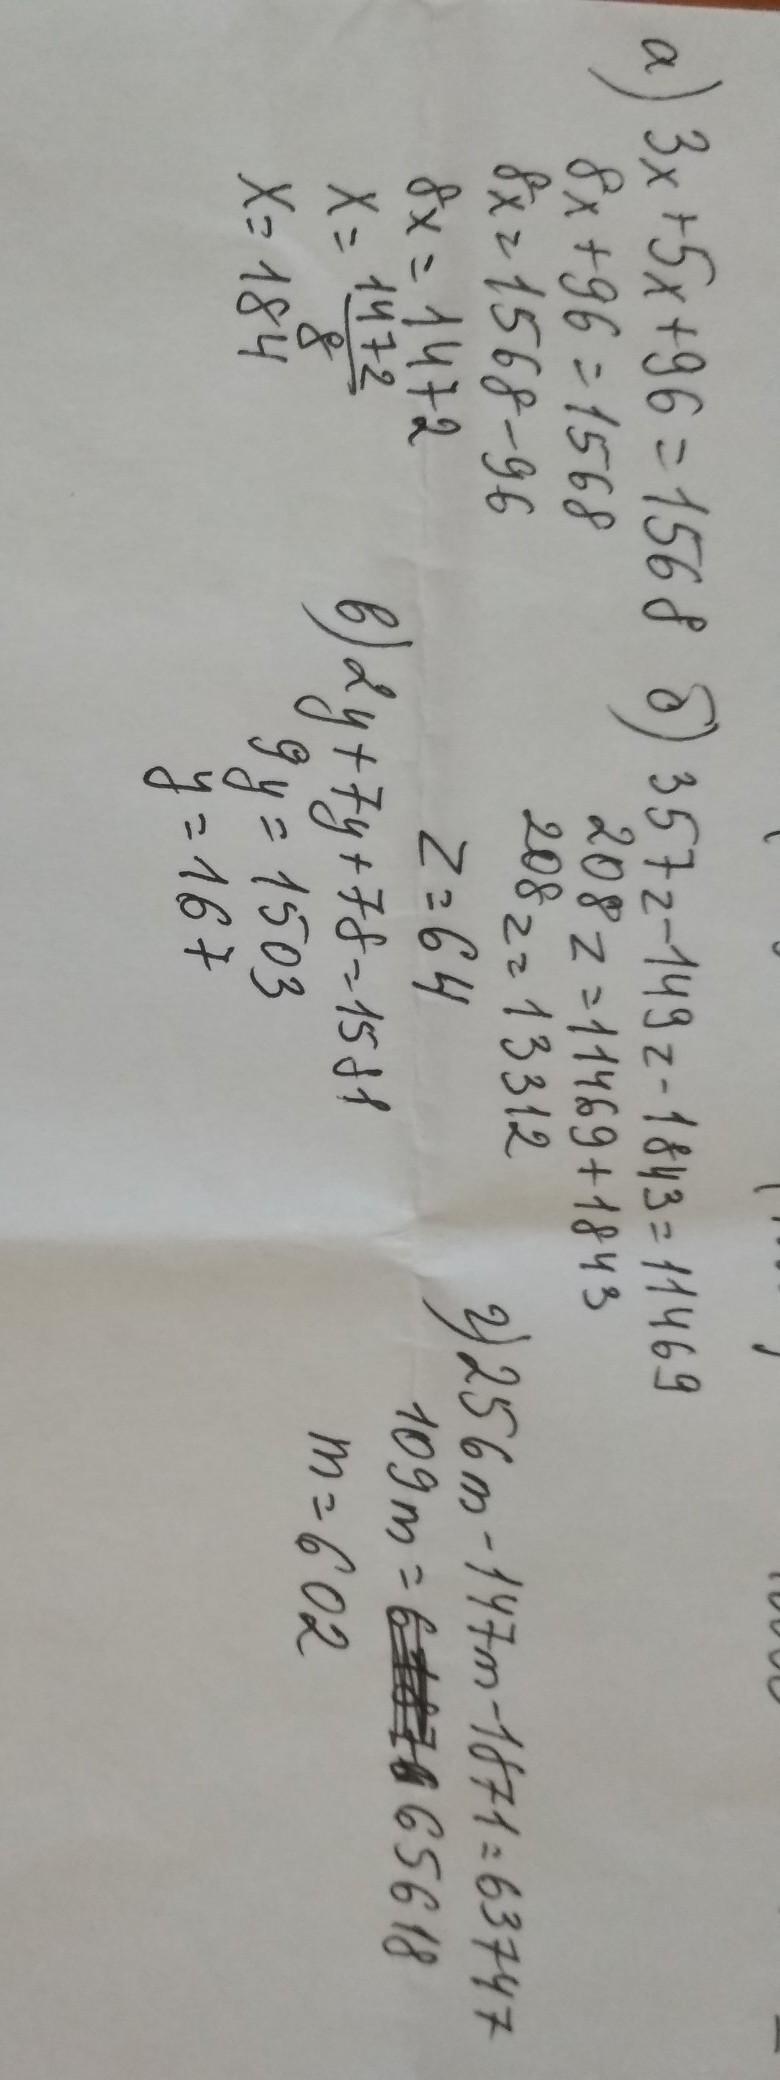 а) 3x+5x+96=1568
8x+96=1568
8x=1568-96
8x=1472
x=1472/8
x=184
б) 357z-149z-1843=11469
208z=11469+1843
208z=13312
z=64
в) 2y+7y+78=1581
9y=1503
y=167
г) 256m-147m-1871=63747
109m=65618
m=602